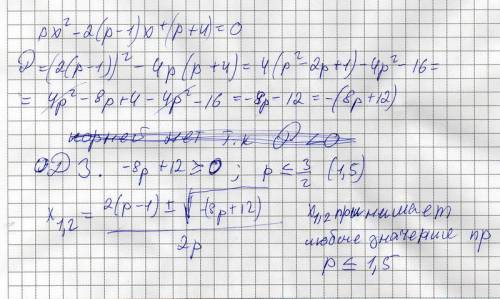 px²-2(p-1)x+(p+4)=0
D=(2(p-1))²-4p(p+4)=4(p²-2p+1)-4p²-16=
=4p²-8p+4-4p²-16=-8p-12=-(8p+12)
корней нет т.к D<0
ОДЗ. -8p+12≥0; p≤3/2 (1,5)
x₁,₂=(2(p-1)±√-(8p+12))/2p
x₁,₂ принимает
любое значение пр
p≤1,5